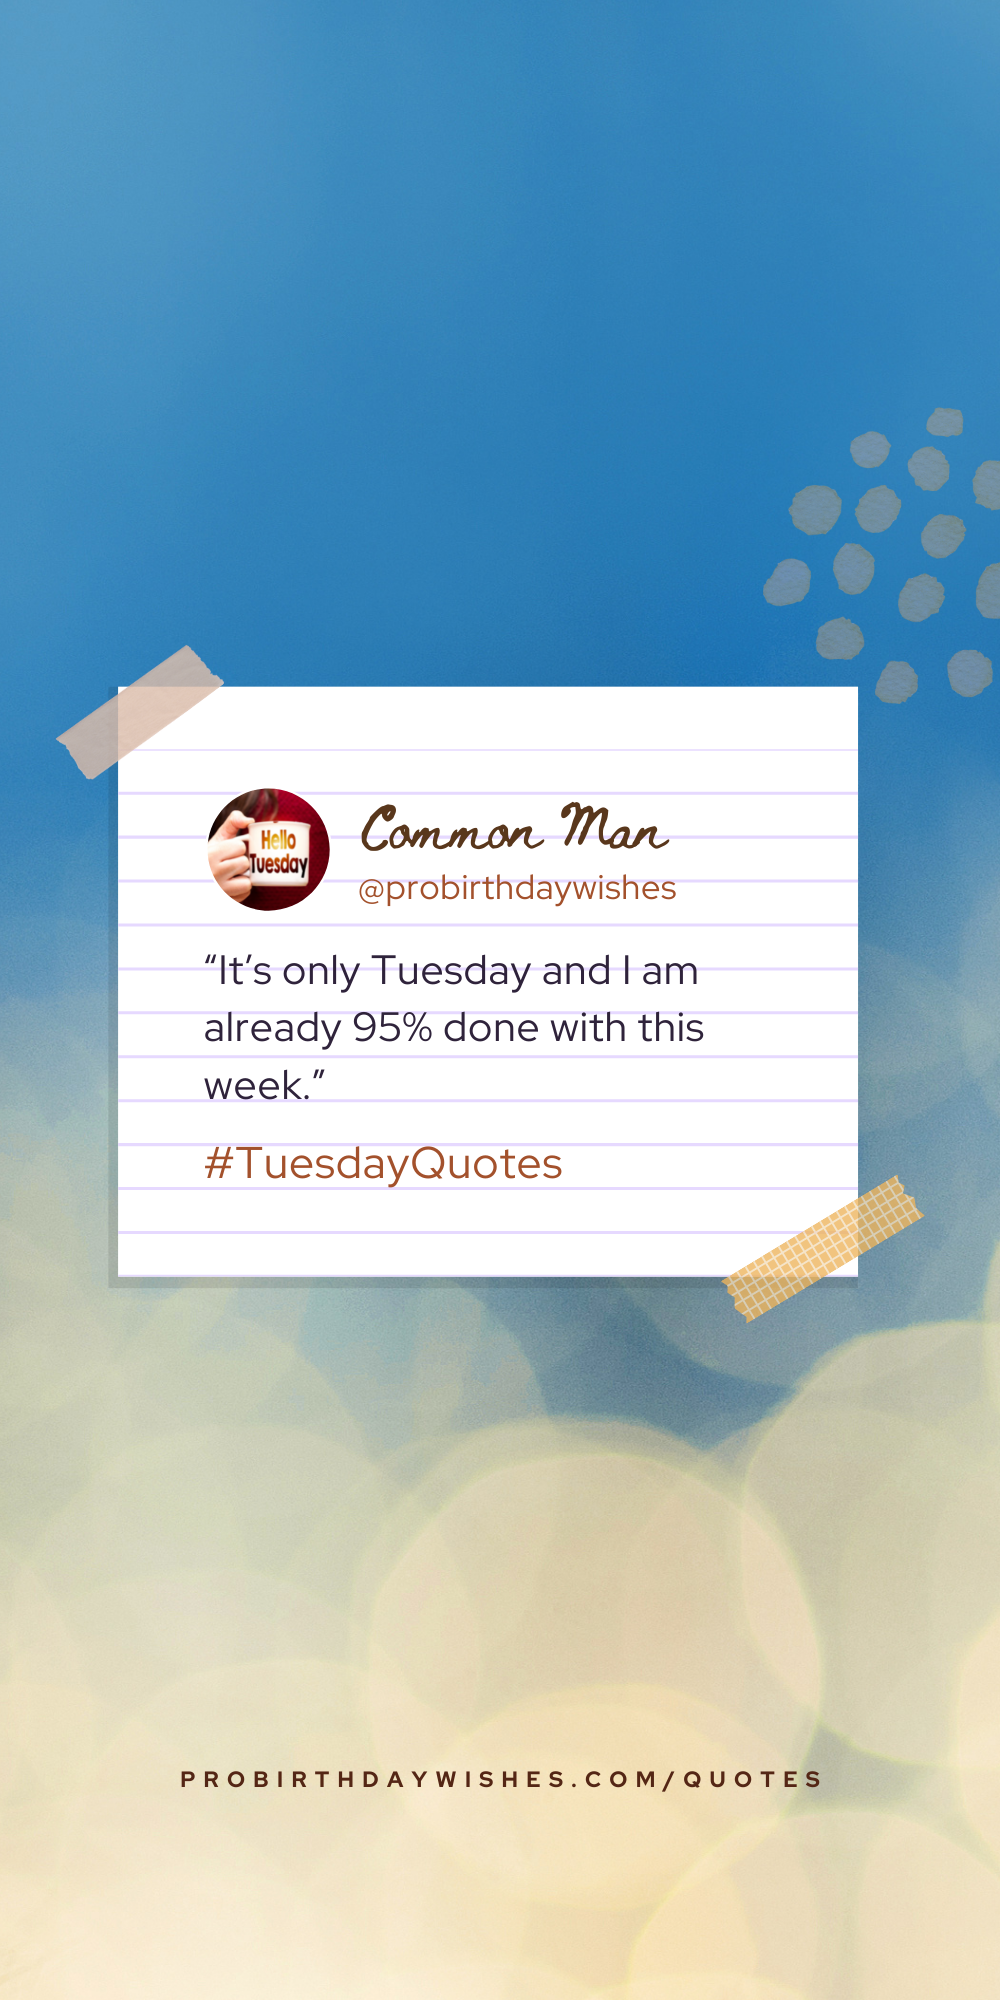 Hello
Tuesday
Common Man
@probirthdaywishes
“It’s only Tuesday and I am
already 95% done with this
week.”
#TuesdayQuotes
PROBIRTHDAYWISHES.COM/QUOTES